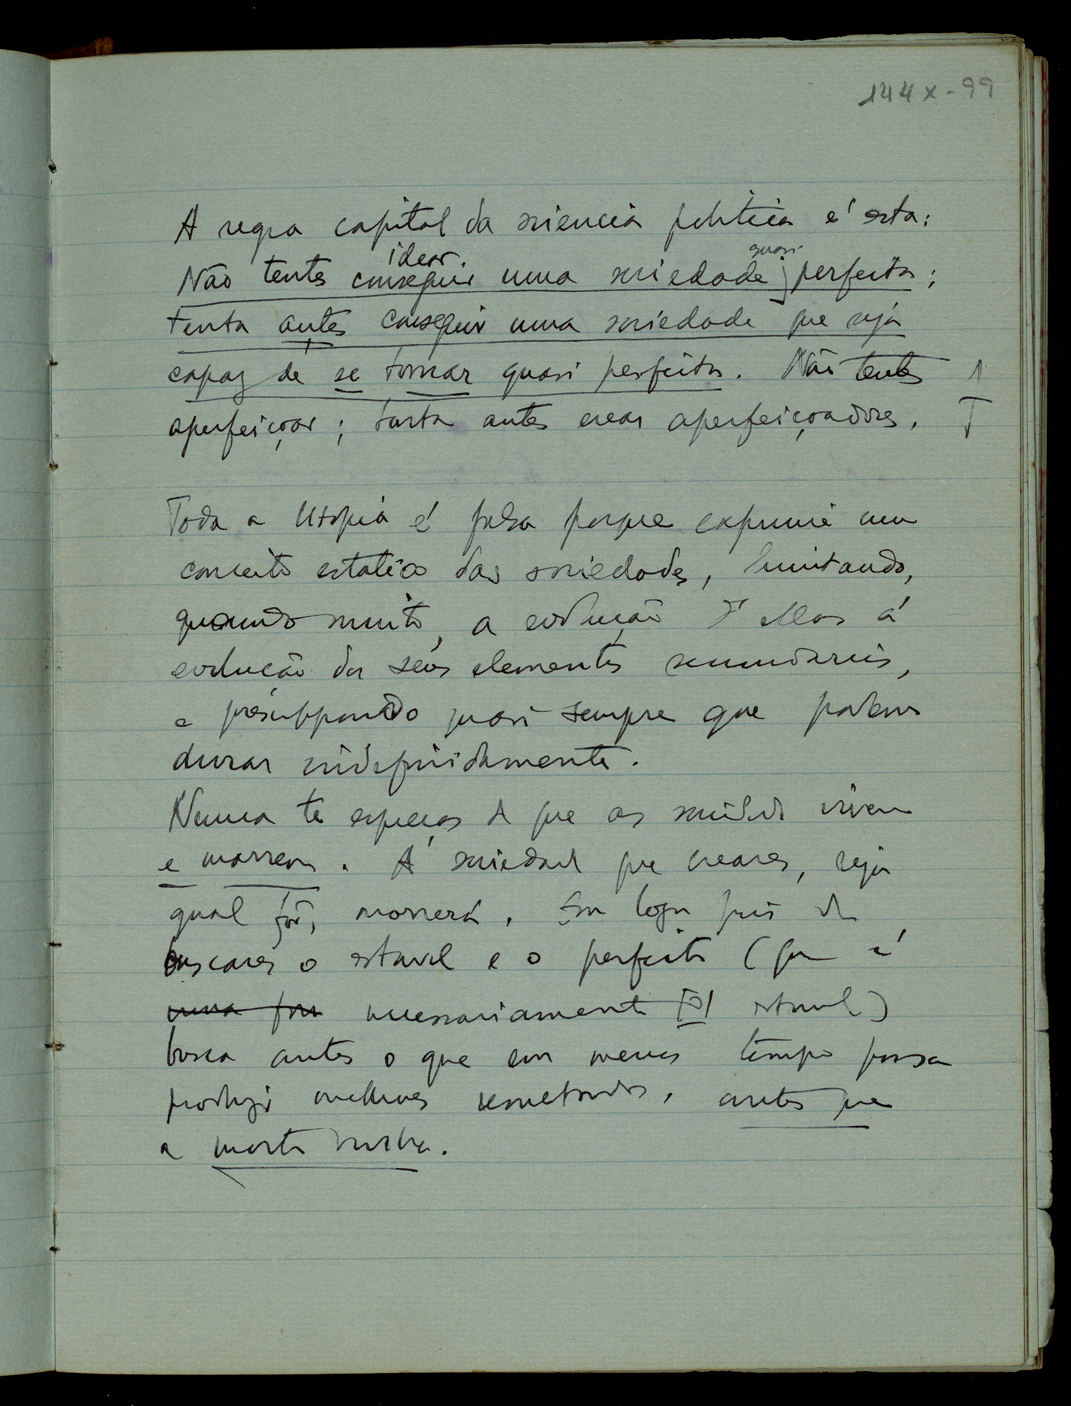 144X-99
A regra capital da sciencia politica é esta:
idear. quasi
Não tentes conseguir uma sociedade perfeita;
tenta antes conseguir uma sociedade que seja
capaz de se tornar quasi perfeita. Não tentes
aperfeiçoar; tenta antes crear aperfeiçoadores.
Toda a Utopia é falsa porque exprime um
conceito estatico das sociedades, limitando,
quando muito, a evolução d'ellas á
evolução dos seus elementos secundarios,
e presuppondo quasi sempre que podem
durar indefinidamente.
Nunca te esqueças de que as sociedades vivem
e morrem. A sociedade que creares, seja
qual fôr, morrerá. Em logar pois de
buscares o estavel e o perfeito (que é
uma necessariamente o estavel)
busca antes o que em menos tempo possa
produzir melhores resultados, antes que
a morte venha.